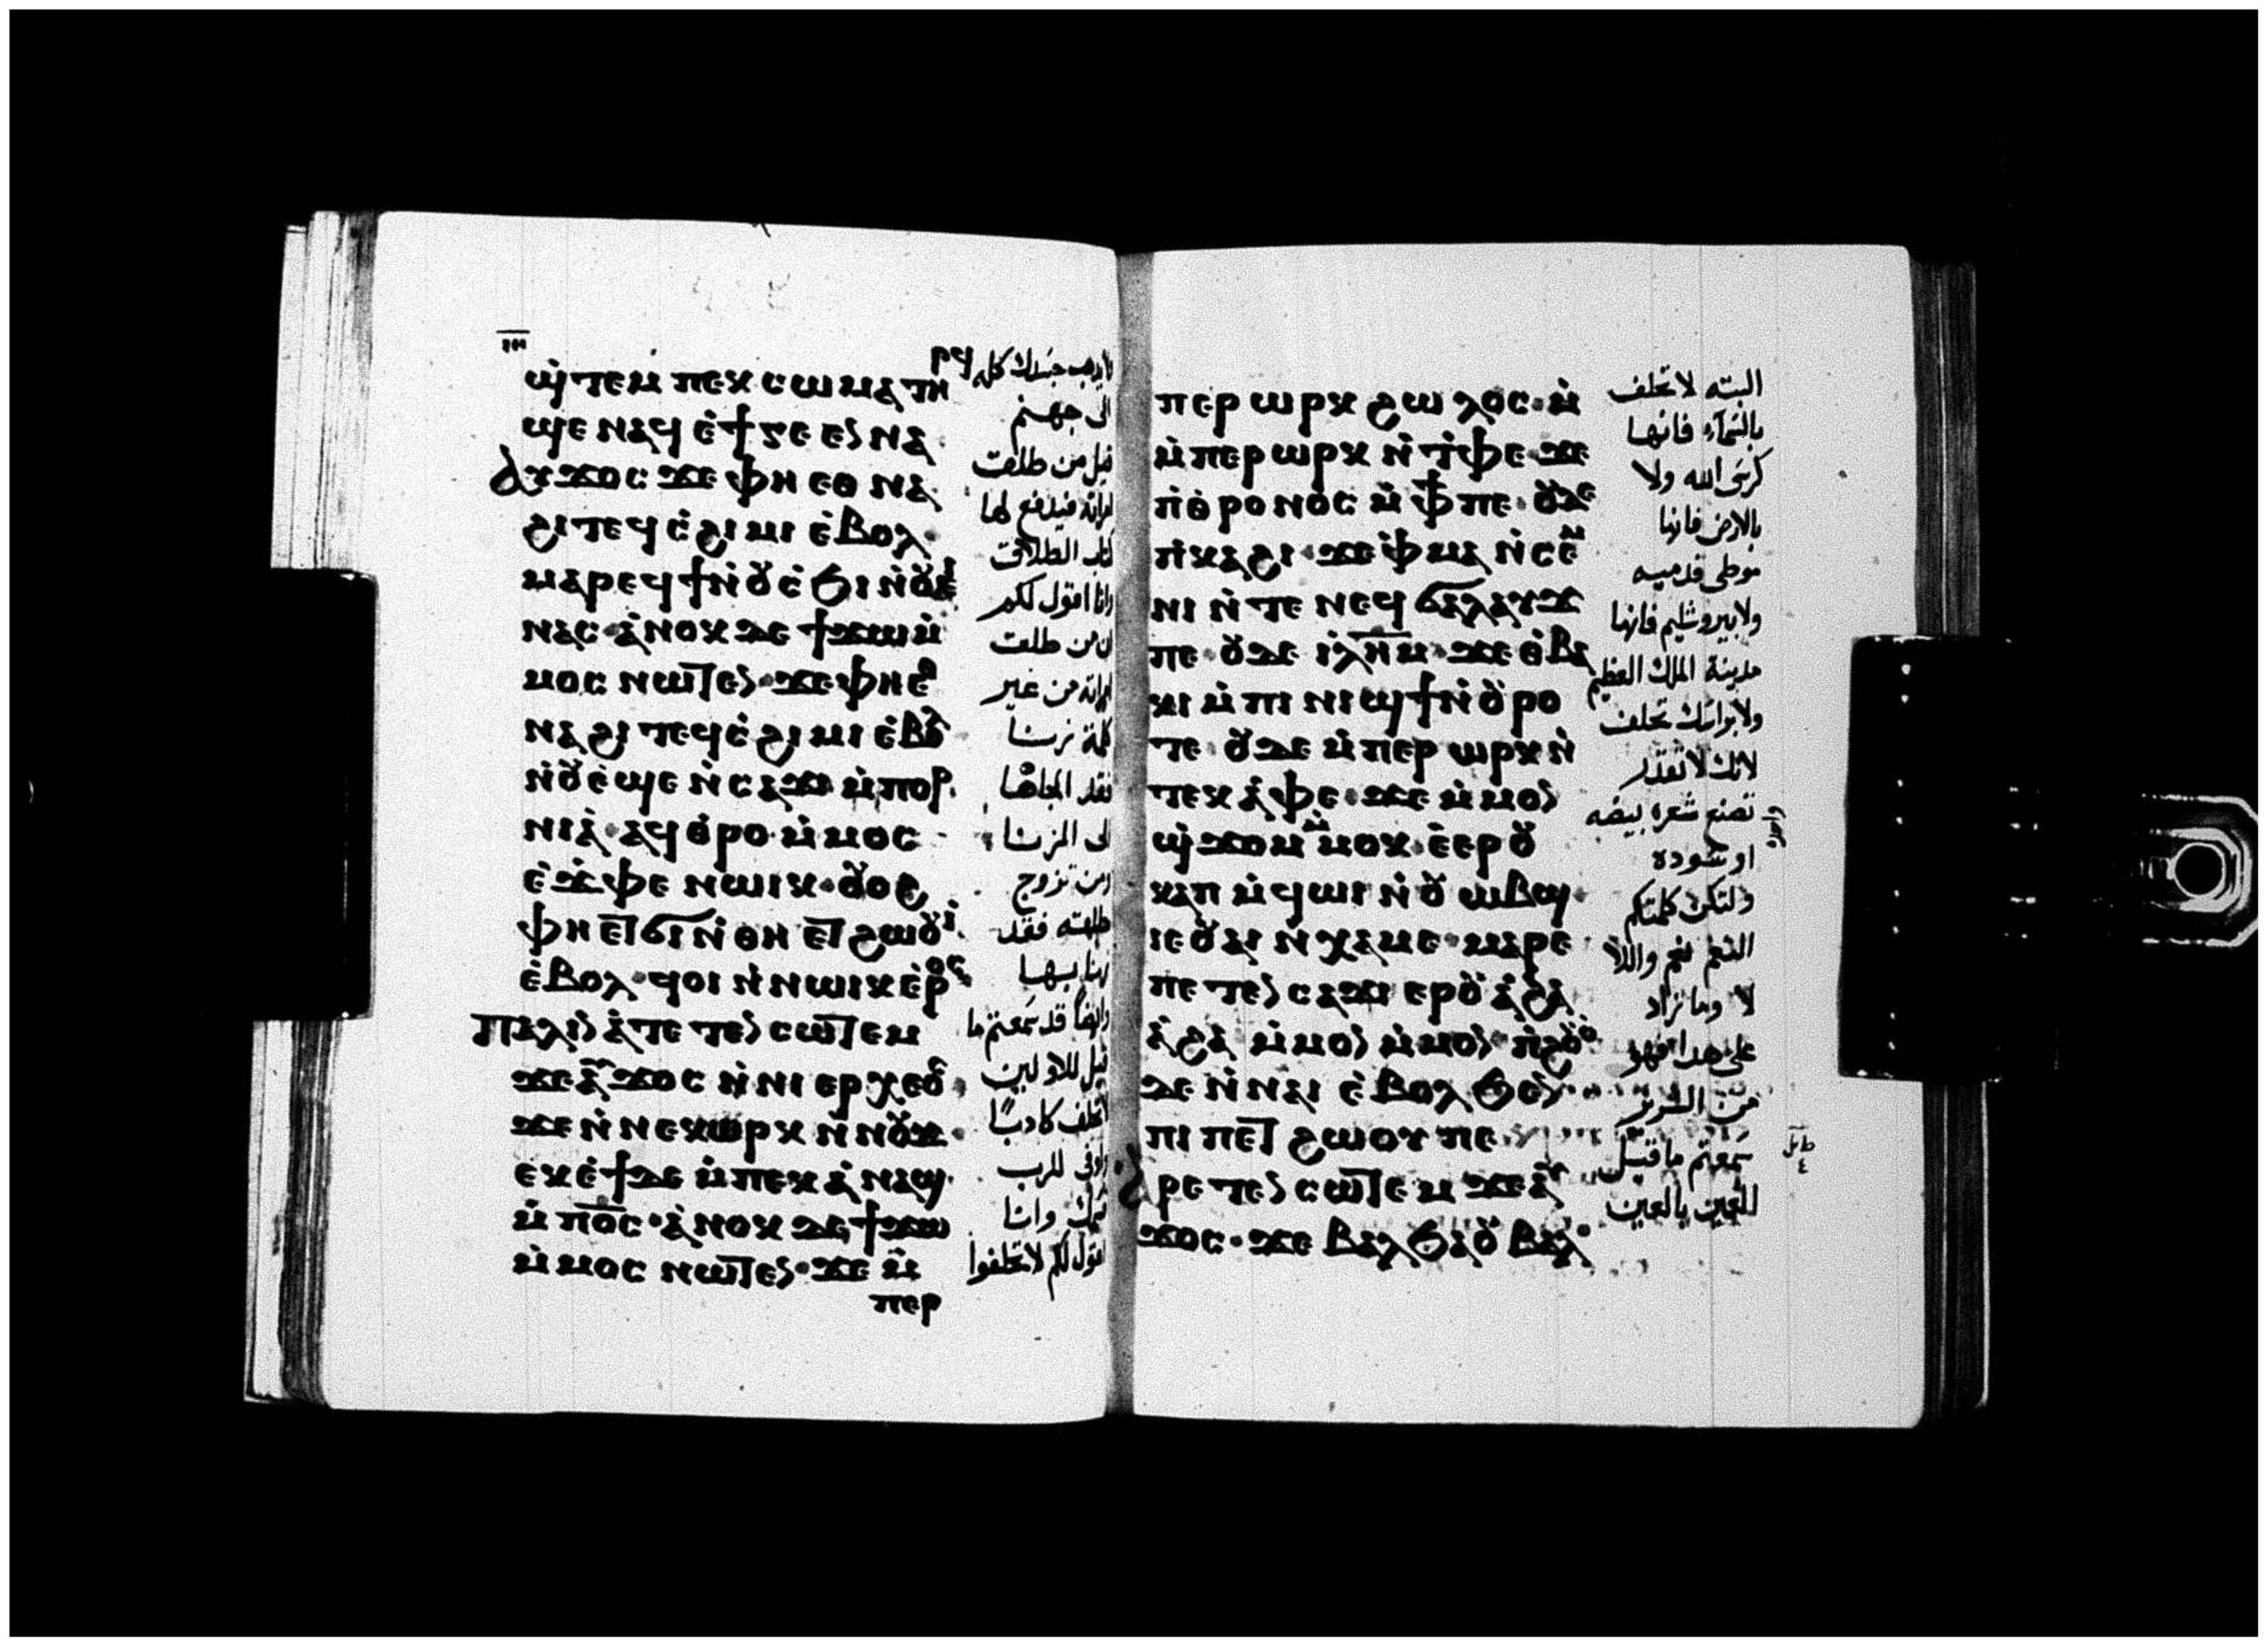 ⲓⲏ
ϣ̀ⲧⲉⲙ ⲡⲉⲕ ⲥⲱⲙⲁ ⲧⲏⲣϥ
ϣⲉ ⲛⲁϥ ⲉ̀ϯⲅⲉⲉⲛⲛⲁ
ⲁⲩϫⲟⲥ ϫⲉ ⲫⲏ ⲉⲑ ⲛⲁ
ϩⲓ ⲧⲉϥ ⲥ̀ϩⲓⲙⲓ ⲉ̀ⲃⲟⲗ
ⲙⲁⲣⲉϥϯ ⲛ̀ⲟⲩⲥ̀ϧⲓ ⲛ̀ⲟⲩⲉⲓ
ⲛⲁⲥ· ⲁ̀ⲛⲟⲕ ⲇⲉ ϯϫⲱ ⲙ̀
ⲙⲟⲥ ⲛⲱⲧⲉⲛ· ϫⲉ ⲫⲏ ⲉⲑ
ⲛⲁ ϩⲓ ⲧⲉϥ ⲥ̀ϩⲓⲙⲓ ⲉ̀ⲃⲟⲗ
ⲛ̀ⲟⲩⲉ̀ϣⲉ ⲛ̀ⲥⲁϫⲓ ⲙ̀ⲡⲟⲣ
ⲛⲓⲁ̀· ⲁϥⲑ̀ⲣⲟ ⲙ̀ⲙⲟⲥ
ⲉ̀ϫ̀ⲫⲉ ⲛⲱⲓⲕ· ⲟⲩⲟϩ
ⲫⲏ ⲉⲧϭⲓ ⲛ̀ ⲑⲏ ⲉⲧ ϩⲱⲟⲩⲓ̀
ⲉ̀ⲃⲟⲗ· ϥⲟⲓ ⲛ̀ⲛⲱⲓⲕ ⲉ̀ⲣⲟⲥ
ⲡⲁⲗⲓⲛ ⲁ̀ⲧⲉ ⲧⲉⲛ ⲥⲱⲧⲉⲙ
ϫⲉ ⲁⲩϫⲟⲥ ⲛ̀ⲛⲓ ⲁⲣⲭⲉⲟⲥ
ϫⲉ ⲛ̀ⲛⲉⲕⲱⲣⲕ ⲛ̀ⲛⲟⲩϫ·
ⲉⲕⲉ̀ϯ ⲇⲉ ⲙ̀ⲡⲉⲕ ⲁ̀ⲛⲁϣ
ⲙ̀ⲡⲟ̅ⲥ̅· ⲁ̀ⲛⲟⲕ ⲇⲉ ϯϫⲱ
ⲙ̀ⲙⲟⲥ ⲛⲱⲧⲉⲛ· ϫⲉ ⲙ̀
ⲡⲉⲣ
يذهب جسدك كله
الى جهنم
قيل من طلقت
امراته فيدفع لها
كتاب الطلاق
وانا اقول لكم
ان من طلقت
امراته من غير
كلمة زنا
فقد الجاها
الى الزنا
ومن تزوج
مطلقه فقد
زنا بها
وايضا قد سمعتم ما
قيل للاولين
لا تحلف كادبا
واوفى للرب
قسمك وانا
اقول لكم لا تحلفوا
ⲡⲉⲣ ⲱⲣⲕ ϩⲱⲗⲟⲥ· ⲙ̀
ⲙ̀ⲡⲉⲣ ⲱⲣⲕ ⲛ̀ⲧ̀ⲫⲉ· ϫⲉ
ⲡ̀ⲑⲣⲟⲛⲟⲥ ⲙ̀ⲫϯ ⲡⲉ· ⲟⲩⲇⲉ
ⲡ̀ⲕⲁϩⲓ· ϫⲉ ⲫ̀ⲙⲁ ⲛ̀ⲥⲉⲙ
ⲛⲓ ⲛ̀ⲧⲉ ⲛⲉϥ ϭⲁⲗⲁⲩϫ
ⲡⲉ· ⲟⲩⲇⲉ ⲓⲗ̅ⲏ̅ⲙ̅· ϫⲉ ⲑ̀ⲃⲁ
ⲕⲓ ⲙ̀ⲡⲓ ⲛⲓϣϯ ⲛ̀ⲟⲩⲣⲟ
ⲧⲉ· ⲟⲩⲇⲉ ⲙ̀ⲡⲉⲣ ⲱⲣⲕ ⲛ̀
ⲧⲉⲕ ⲁ̀ⲫⲉ· ϫⲉ ⲙ̀ⲙⲟⲛ
ϣ̀ϫⲟⲙ ⲙ̀ⲙⲟⲕ ⲉ̀ⲉⲣ ⲟⲩ
ⲕⲁⲡ ⲙ̀ϥⲱⲓ ⲛ̀ⲟⲩⲱⲃϣ·
ⲓⲉ ⲟⲩⲁⲓ ⲛ̀ⲭⲁⲙⲉ· ⲙⲁⲣⲉ
ⲡⲉⲧⲉⲛ ⲥⲁϫⲓ ⲉⲣⲟⲩ ⲁ̀ϩⲁ
ⲁ̀ϩⲁ ⲙ̀ⲙⲟⲛ ⲙ̀ⲙⲟⲛ· ⲡ̀ϩⲟⲩⲟ
ⲇⲉ ⲛ̀ⲛⲁⲓ ⲉ̀ⲃⲟⲗ ϧⲉⲛ
ⲡⲓ ⲡⲉⲧ ϩⲱⲟⲩ ⲡⲉ
ⲁⲣⲉ ⲧⲉⲛ ⲥⲱⲧⲉⲙ ϫⲉ ⲁⲩ
ϫⲟⲥ· ϫⲉ ⲃⲁⲗ ϧⲁ ⲟⲩ ⲃⲁⲗ
البته لا تحلف
بالسمآء فانها
كرسى الله ولا
بالارض فانها
موطى قدميه
ولا بيروشليم فانها
مدينة الملك العظيم
ولا براسك تحلف
لانك لا تقدر
تصنع شعره بيضه
او سوده
ولتكن كلمتكم
النعم نعم واللا
لا وما زاد
على هدا فهو
من الشرير
سمعتم ما قيل
العين بالعين